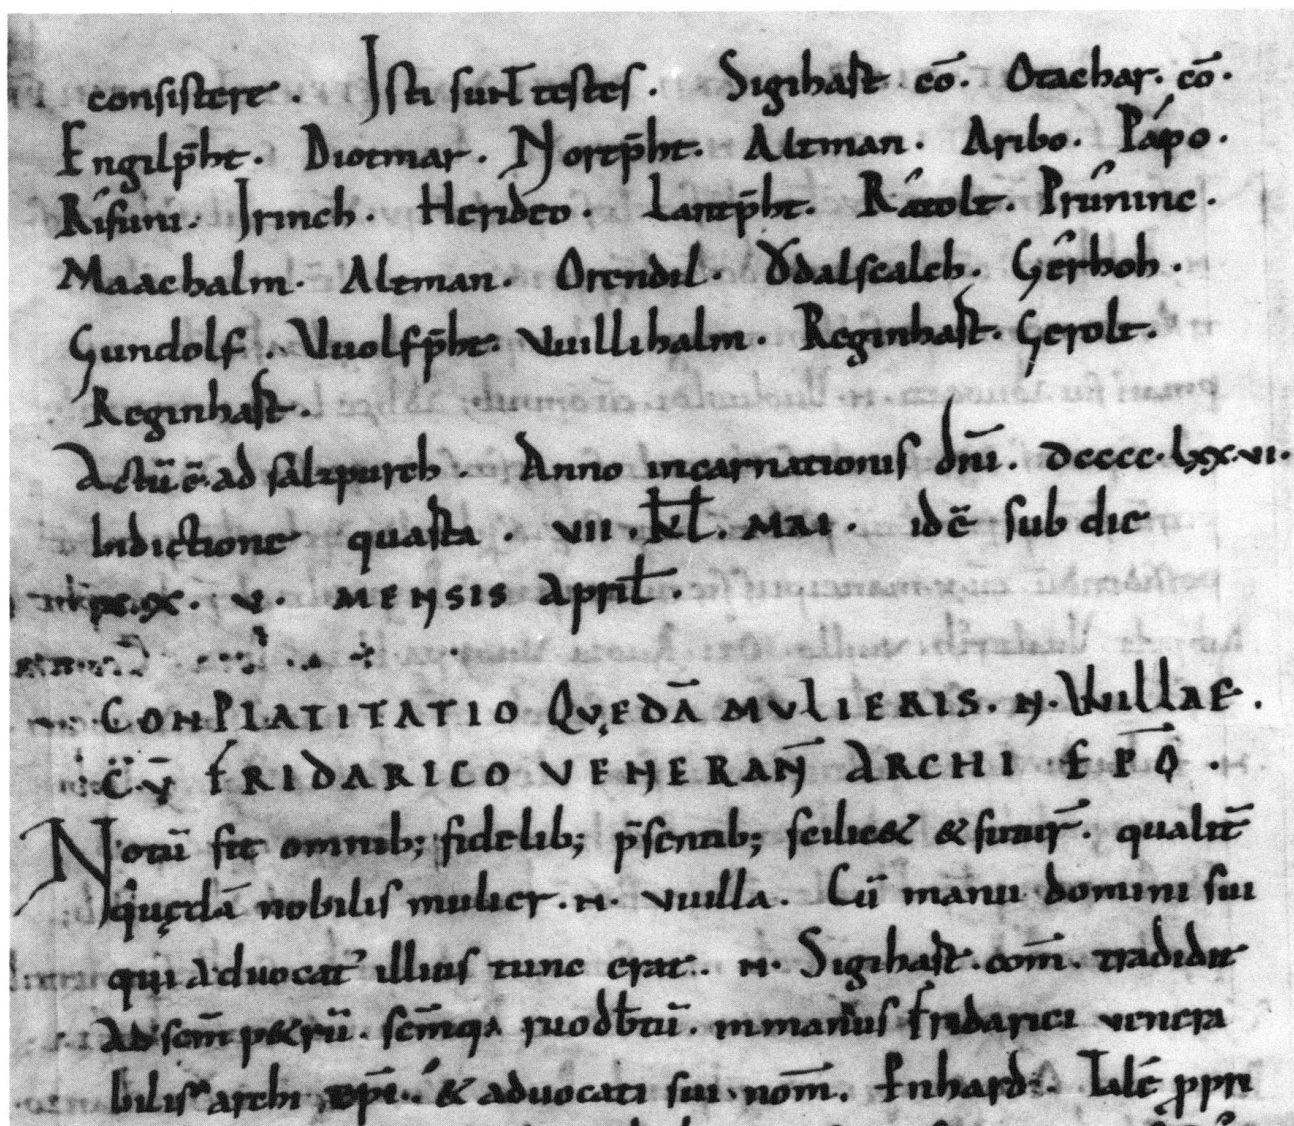 consistere . Isti sunt testes . Sigihart cō. Otachar. cō.
Engilp̄ht. Diotmar. Nortp̄ht. Altman. Aribo. Pápo.
Rîfuni. Irinch. Herideo. Lantp̄ht. Râtolt. Prûninc.
Maachalm. Altman. Orendil. Vdalscalch. Gêrhoh.
Gundolf. Vuolfp̄ht. Vuillihalm. Reginhart. Gerolt.
Reginhart.
Actū ē ad salzpurch. Anno incarnationis dn̄i. dcccc.lxx.vi.
Indictione quarta . vii . kl̄. MAI . idē sub die
xx. v. MENSIS April̄.
CONPLATITATIO QVĘDĀ MVLIERIS. N. VuillAE.
CV̄ FRIDARICO VENERAN̄ ARCHI EP̄O .
Notū sit omnib; fidelib; p̄sentib; scilic& & futur̄. qualit̄
quędā nobilis mulier. N. Vuilla. Cū manu domini sui
qui aduocat' illius tunc erat. N. Sigihart. com̄. tradidit
Ad sc̄m p&rū. sc̄mq; ruodb̄tū. in manus fridarici venera
bilis archi ep̄i. & aduocati sui nom̄. Enhard. Talē ppri